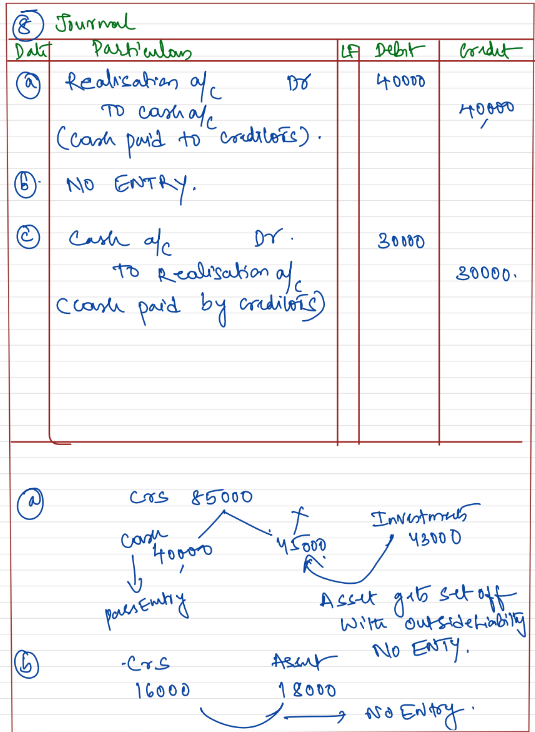 8 Journal
Date Particulars LF Debit Credit
a Realisation a/c Dr 40000
To cash a/c 40000
(cash paid to creditors).
b. NO ENTRY.
c Cash a/c Dr. 30000
To Realisation a/c 30000.
(cash paid by creditors)
a Crs 85000
Cash 40000 45000 Investments 43000
Pass Entry
Asset gets set off
with outside liability
NO ENTY.
b Crs Asset
16000 18000
NO Entry.